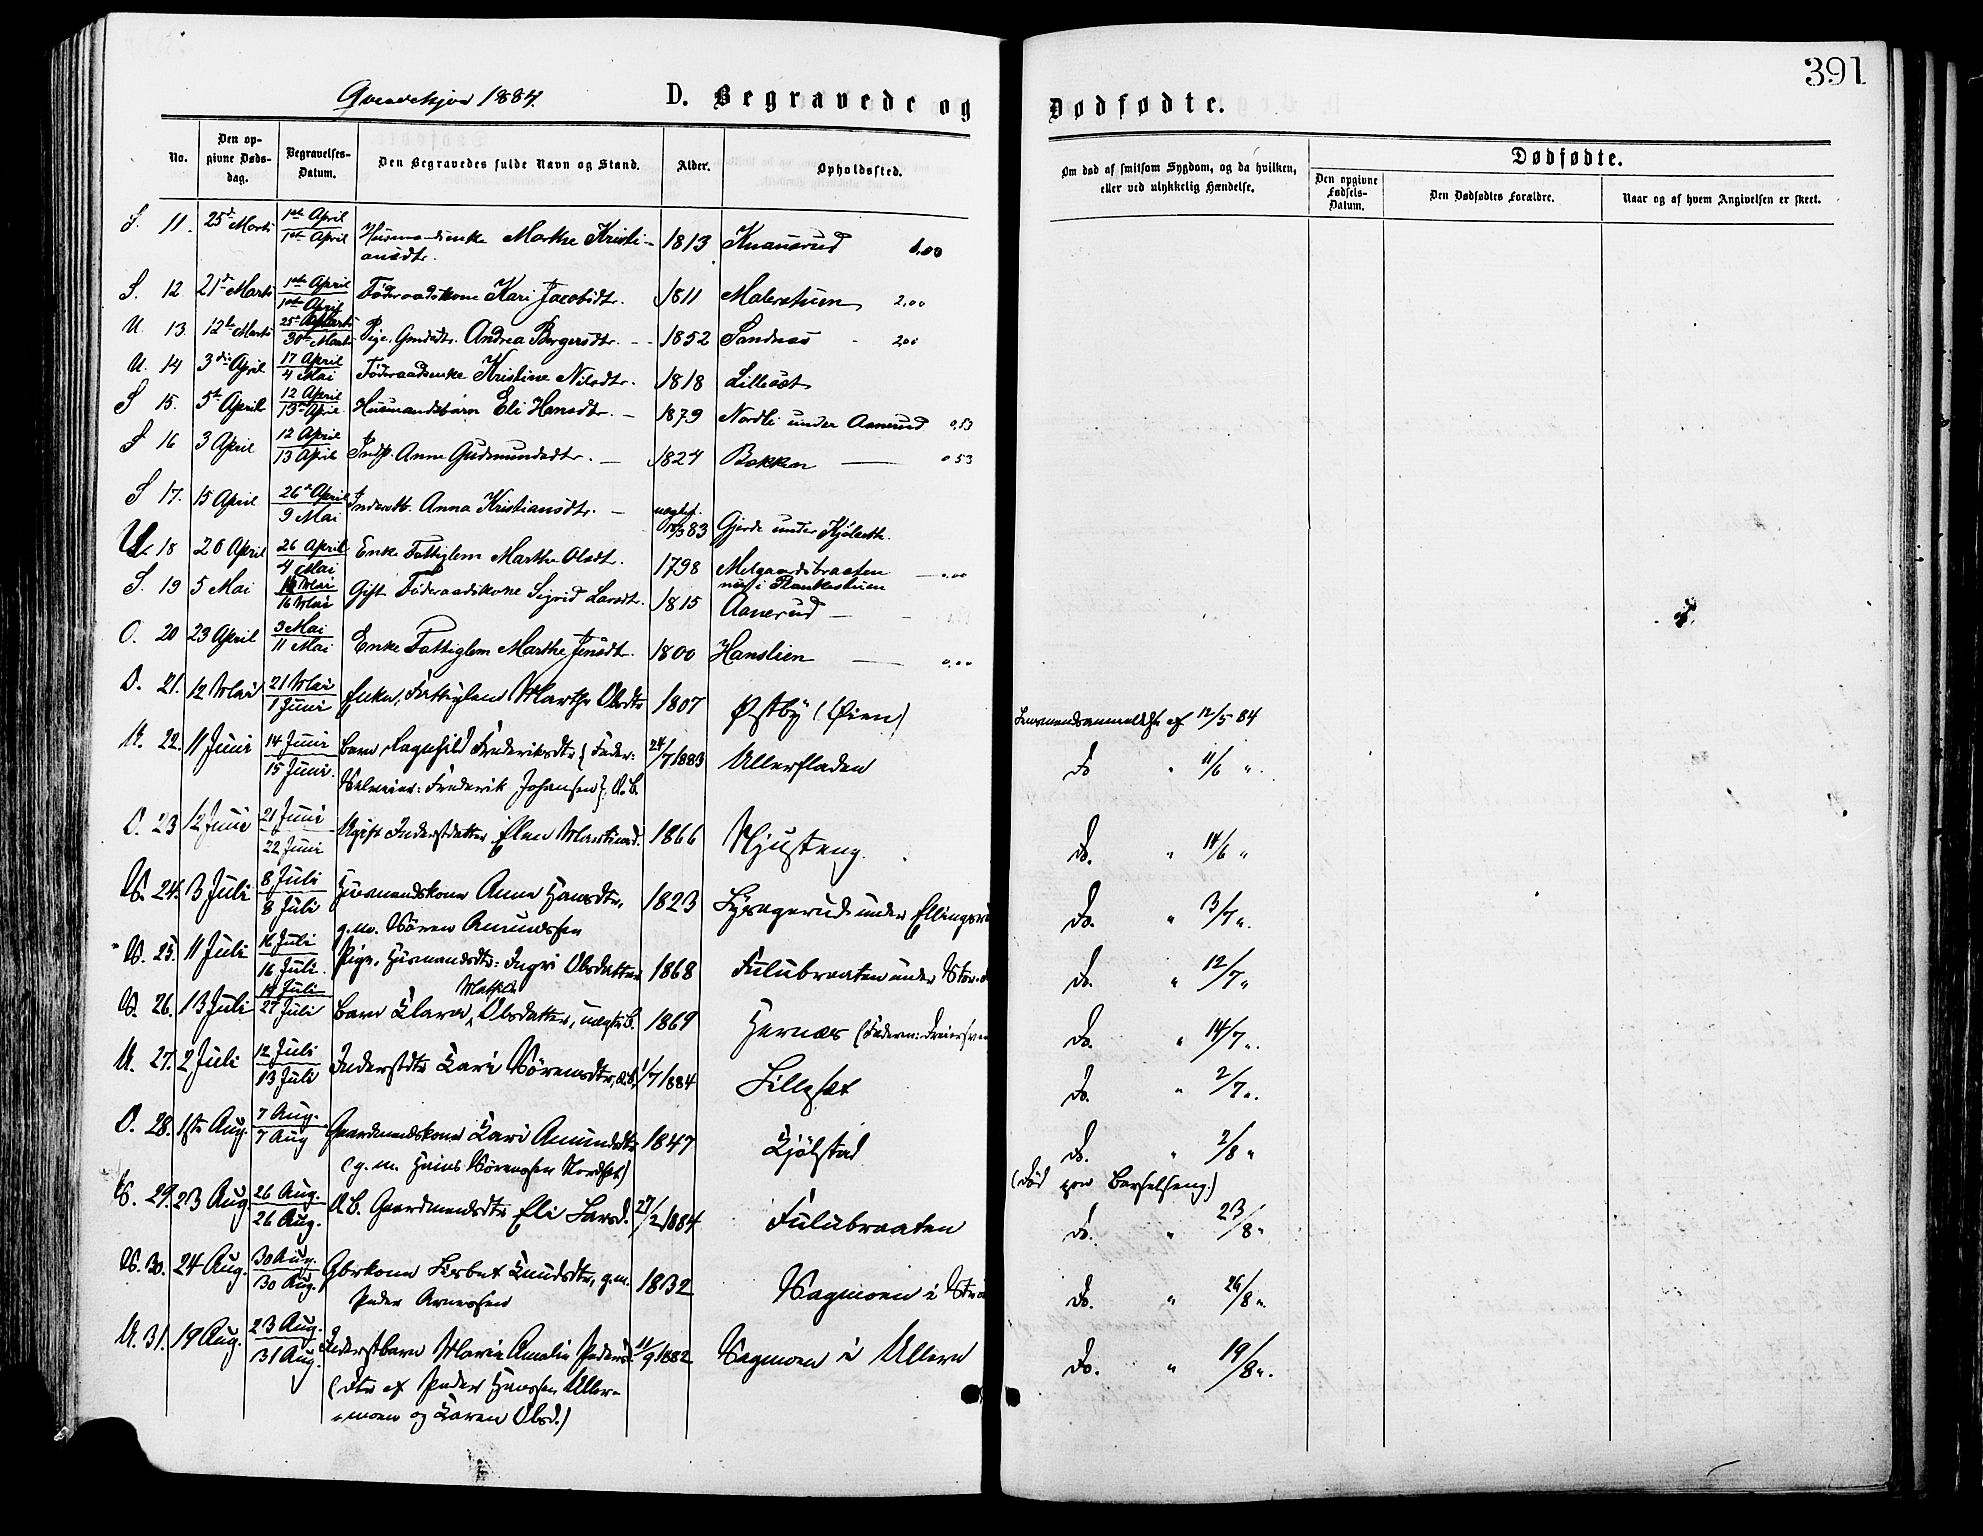 391
Qvindekjøn 1884.
D. Begravede og
Dødfødte.
No.
Den opgivne Dødsdag.
Begravelses-Datum.
Den Begravedes fulde Navn og Stand.
Alder.
Opholdssted.
Om død af smitsom Sygdom, og da hvilken, eller ved ulykkelig Hændelse.
Dødfødte.
Den opgivne Fødsels-Datum.
Den Dødfødtes Forældre.
Naar og af hvem Angivelsen er skeet.
S. 11. 25de Marts 1ste April 1ste April Marthe Kristiansdtr. 1813 Knauserud
S. 12 21de Marts 1ste April 1ste April Føderaadskone Kari Jacobsdtr. 1811 2.00
U. 13. 12te Marts 30te Marts Pige, Andrea Borgersdtr. 1852 Sandnæs 2.00
U. 14 3die April 17 April 4 Mai Føderaadsenke Kristine Nilsdtr. 1818 Lilleset
S 15. 5te April 12 April 13de April Husmandsbarn Eli Hansdtr. 1879 Nordli under Aanerud 0.53
S 16 3 April 12 April 13 April Indst. Anne Gudmundsdtr. 1824 Bakken 0 53
S 17. 15 April 26de April 9 Mai Anna Kristiansdtr. 83 Gjerde under
U. 18 20 April 26 April 4 Mai Enke Fattiglem Marthe Olsdt. 1798 Melgaardsbraaten nu i Plankestuen
S. 19 5 Mai 16 Mai Gift Føderaadskone Sigrid Larsdt. 1815 Aanerud
O. 20 23 April 3 Mai 11 Mai Enke Fattiglem Marthe Jensdt. 1800 Hanslien
O. 21. 12 Mai 21 Mai 1 Juni Enke, Fattiglem Marthe Olsdtr 1807 Østby (Øien) Lensmandsanmeldelse af 12/5 84
U. 22. 11 Juni 14 Juni 15 Juni. Barn Ragnhild Frederiksdtr (Fader: Frederik Johansen) 24/7 1883 Ullerfladen Do " 11/6 ".
O. 23 12 Juni 21 Juni 22 Juni Ugift Inderstdatter Elen 1866 Mjusteng. Do. " 14/6 "
S. 24. 3 Juli 8 Juli 8 Juli Husmandskone Anne Hansdtr, g.m. Søren Amundsen 1823 under Do. " 3/7 ".
S. 25. 11 Juli 16 Juli 16 Juli. Pige, Husmandsdtr: Ingri Olsdatter 1868 Fulubraaten under Do. " 12/7 "
S. 26. 13 Juli 19 Juli 27 Juli Barn Clara Mathilde Olsdatter, uægte B. 1869 Hernæs Do. " 14/7 ".
U. 27. 2 Juli 12 Juli 13 Juli Inderstdtr Kari Sørensdtr, 1/7 1884 Lilleset Do. " 2/7 ".
O. 28. 1ste Aug. 7 Aug. 7 Aug Gaardmandskone Kari Amundsdtr (g.m. Hans Sørensen Nordset) 1847 Kjølstad Do. " 2/8 "
(Død paa Barselseng.)
S. 29. 23 Aug 26 Aug. 26 Aug. Gaardmandsdtr Eli Larsd. 27/2 1884 Fulubraaten Do. " 23/8 "
S. 30. 24 Aug. 30 Aug. 30 Aug. Gbrkone Lisbet Knudsdtr, g.m. Peder Arnessen 1832 Sagmoen i Do. " 26/8 ".
U. 31. 19 Aug. 23 Aug. 31 Aug. Inderstbarn Marie Amalie Pedersd. (Dtr af Peder Hanssen Ullermoen og Karen Olsd.) 11/9 1882 Sagmoen i Ullern Do. " 19/8 ".